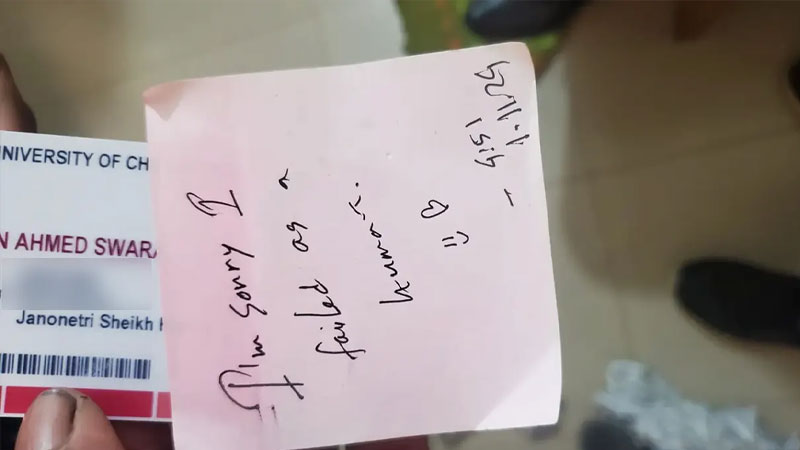 UNIVERSITY OF CH
N AHMED SWARA
Janonetri Sheikh H
I'm sorry I
failed as a
human.
:) ♡
- 4:51
1.11.24